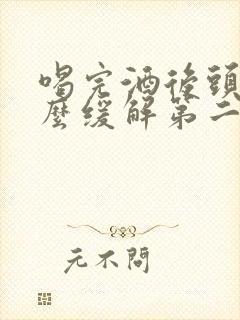 喝完酒後頭
麼缓解第二
元不問